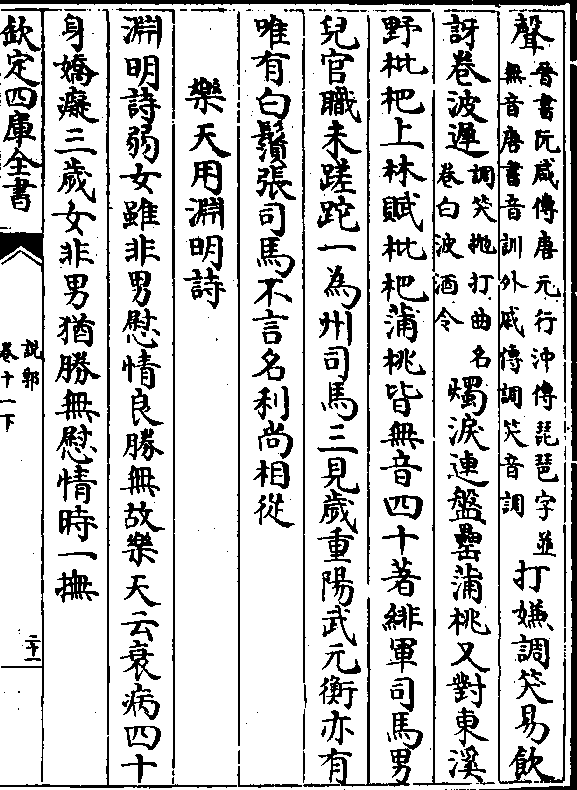 聲晉書阮咸傳唐元行沖傳琵琶字並無音唐書音訓外戚傳調笑音調打嫌調笑易飲
訝卷波遲調笑拋打曲名卷白波酒令燭淚連盤壘蒲桃又對東溪
野枇杷上林賦枇杷蒲桃皆無音四十著緋軍司馬男
兒官職未蹉跎一為州司馬三見歲重陽武元衡亦有
唯有白鬚張司馬不言名利尚相從
樂天用淵明詩
淵明詩弱女雖非男慰情良勝無故樂天云衰病四十
身嬌癡三歲女非男猶勝無慰情時一撫
欽定四庫全書
說郛
卷十一下
二十二